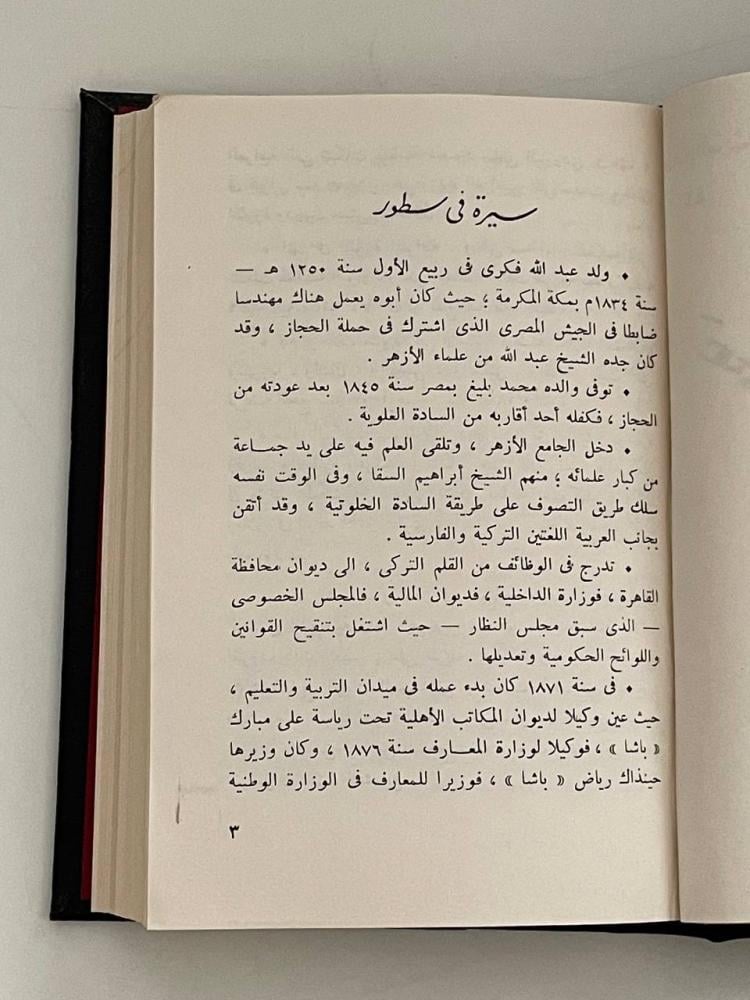 سيرة فى سطور
• ولد عبد الله فكرى فى ربيع الأول سنة ١٢٥٠ هـ —
سنة ١٨٣٤م بمكة المكرمة ؛ حيث كان أبوه يعمل هناك مهندسا
ضابطا فى الجيش المصرى الذى اشترك فى حملة الحجاز ، وقد
كان جده الشيخ عبد الله من علماء الأزهر .
• توفى والده محمد بليغ بمصر سنة ١٨٤٥ بعد عودته من
الحجاز ، فكفله أحد أقاربه من السادة العلوية .
• دخل الجامع الأزهر ، وتلقى العلم فيه على يد جمـاعة
من كبار علمائه ؛ منهم الشيخ أبراهيم السقا ، وفى الوقت نفسه
سلك طريق التصوف على طريقة السادة الخلوتية ، وقد أتقن
بجانب العربية اللغتين التركية والفارسية .
• تدرج فى الوظائف من القلم التركى ، الى ديوان محافظة
القاهرة ، فوزارة الداخلية ، فديوان المالية ، فالمجلس الخصوصى
— الذى سبق مجلس النظار — حيث اشتغل بتنقيح القوانين
واللوائح الحكومية وتعديلها .
• فى سنة ١٨٧١ كان بدء عمله فى ميدان التربية والتعليم ،
حيث عين وكيلا لديوان المكاتب الأهلية تحت رياسة على مبارك
« باشا » ، فوكيلا لوزارة المعـارف سنة ١٨٧٦ ، وكان وزيرها
حينذاك رياض « باشا » ، فوزيرا للمعارف فى الوزارة الوطنية
٣